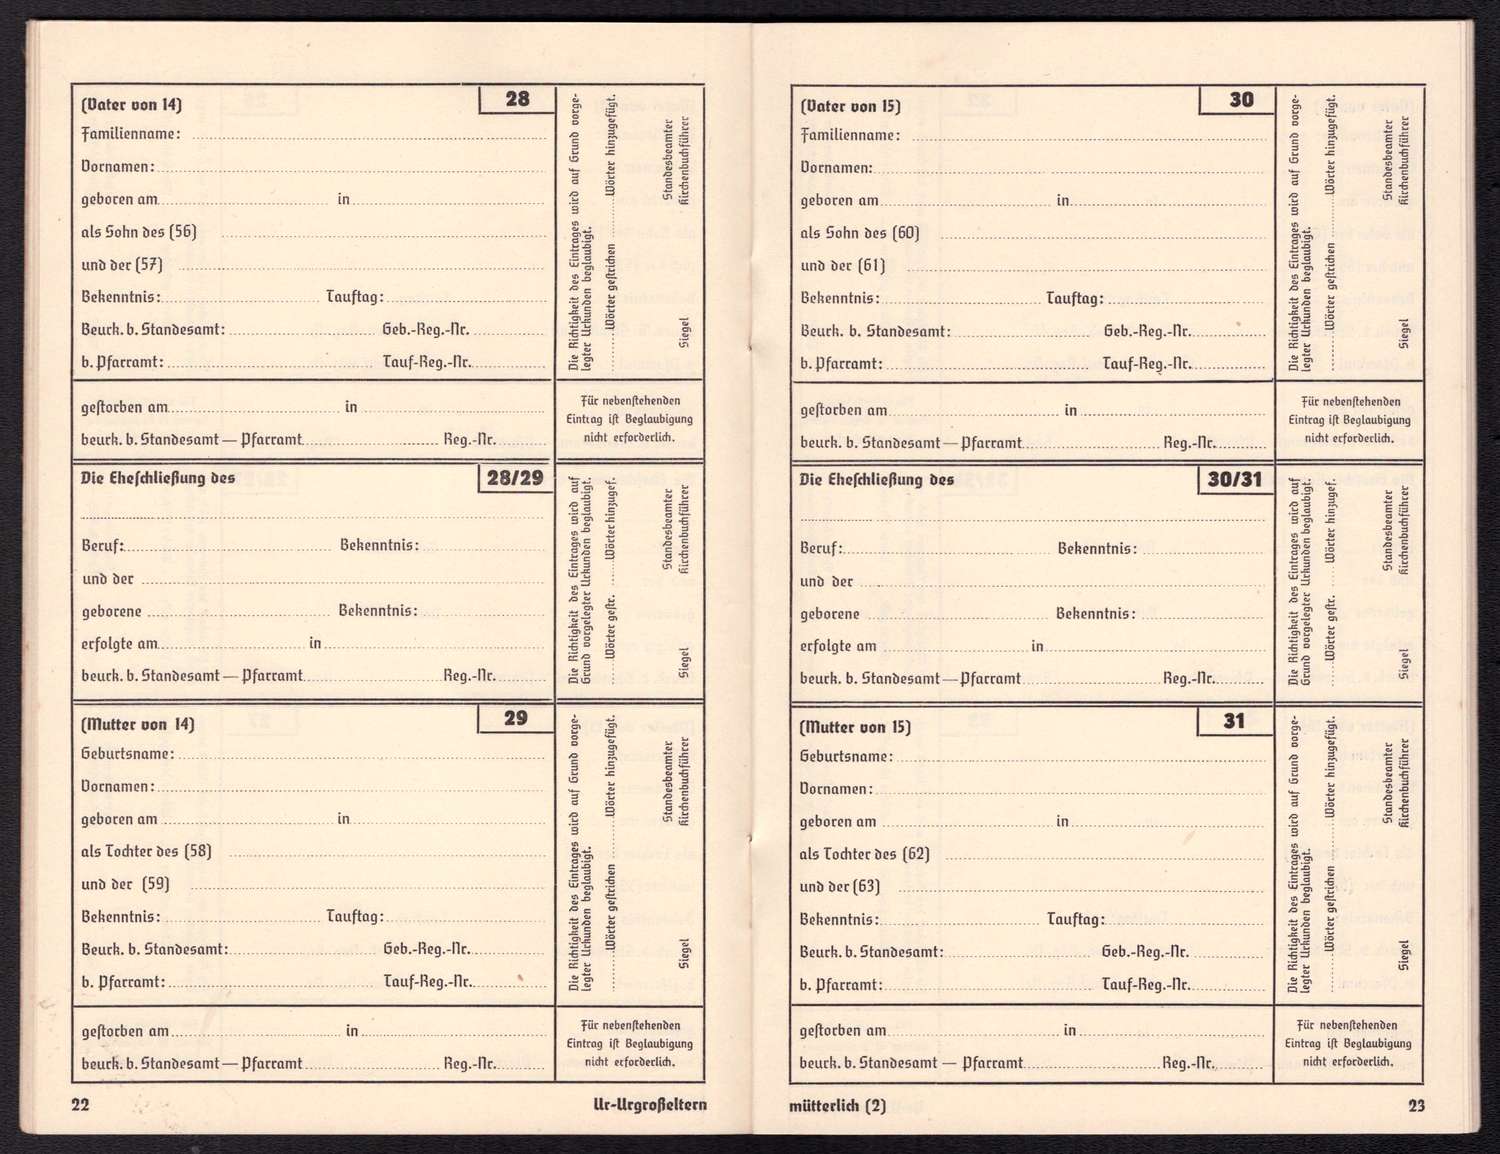 (Vater von 14) 28
Familienname:
Vornamen:
geboren am in
als Sohn des (56)
und der (57)
Bekenntnis: Tauftag:
Beurk. b. Standesamt: Geb.-Reg.-Nr.
b. Pfarramt: Tauf-Reg.-Nr.
Die Richtigkeit des Eintrages wird auf Grund vorge-
legter Urkunden beglaubigt.
Wörter gestrichen Wörter hinzugefügt.
Standesbeamter
Siegel Kirchenbuchführer
gestorben am in
beurk. b. Standesamt — Pfarramt Reg.-Nr.
Für nebenstehenden
Eintrag ist Beglaubigung
nicht erforderlich.
Die Eheschließung des 28/29
Beruf: Bekenntnis:
und der
geborene Bekenntnis:
erfolgte am in
beurk. b. Standesamt — Pfarramt Reg.-Nr.
Die Richtigkeit des Eintrages wird auf
Grund vorgelegter Urkunden beglaubigt.
Wörter gestr. Wörter hinzugef.
Standesbeamter
Siegel Kirchenbuchführer
(Mutter von 14) 29
Geburtsname:
Vornamen:
geboren am in
als Tochter des (58)
und der (59)
Bekenntnis: Tauftag:
Beurk. b. Standesamt: Geb.-Reg.-Nr.
b. Pfarramt: Tauf-Reg.-Nr.
Die Richtigkeit des Eintrages wird auf Grund vorge-
legter Urkunden beglaubigt.
Wörter gestrichen Wörter hinzugefügt.
Standesbeamter
Siegel Kirchenbuchführer
gestorben am in
beurk. b. Standesamt — Pfarramt Reg.-Nr.
Für nebenstehenden
Eintrag ist Beglaubigung
nicht erforderlich.
22 Ur-Urgroßeltern
(Vater von 15) 30
Familienname:
Vornamen:
geboren am in
als Sohn des (60)
und der (61)
Bekenntnis: Tauftag:
Beurk. b. Standesamt: Geb.-Reg.-Nr.
b. Pfarramt: Tauf-Reg.-Nr.
Die Richtigkeit des Eintrages wird auf Grund vorge-
legter Urkunden beglaubigt.
Wörter gestrichen Wörter hinzugefügt.
Standesbeamter
Siegel Kirchenbuchführer
gestorben am in
beurk. b. Standesamt — Pfarramt Reg.-Nr.
Für nebenstehenden
Eintrag ist Beglaubigung
nicht erforderlich.
Die Eheschließung des 30/31
Beruf: Bekenntnis:
und der
geborene Bekenntnis:
erfolgte am in
beurk. b. Standesamt — Pfarramt Reg.-Nr.
Die Richtigkeit des Eintrages wird auf
Grund vorgelegter Urkunden beglaubigt.
Wörter gestr. Wörter hinzugef.
Standesbeamter
Siegel Kirchenbuchführer
(Mutter von 15) 31
Geburtsname:
Vornamen:
geboren am in
als Tochter des (62)
und der (63)
Bekenntnis: Tauftag:
Beurk. b. Standesamt: Geb.-Reg.-Nr.
b. Pfarramt: Tauf-Reg.-Nr.
Die Richtigkeit des Eintrages wird auf Grund vorge-
legter Urkunden beglaubigt.
Wörter gestrichen Wörter hinzugefügt.
Standesbeamter
Siegel Kirchenbuchführer
gestorben am in
beurk. b. Standesamt — Pfarramt Reg.-Nr.
Für nebenstehenden
Eintrag ist Beglaubigung
nicht erforderlich.
mütterlich (2) 23